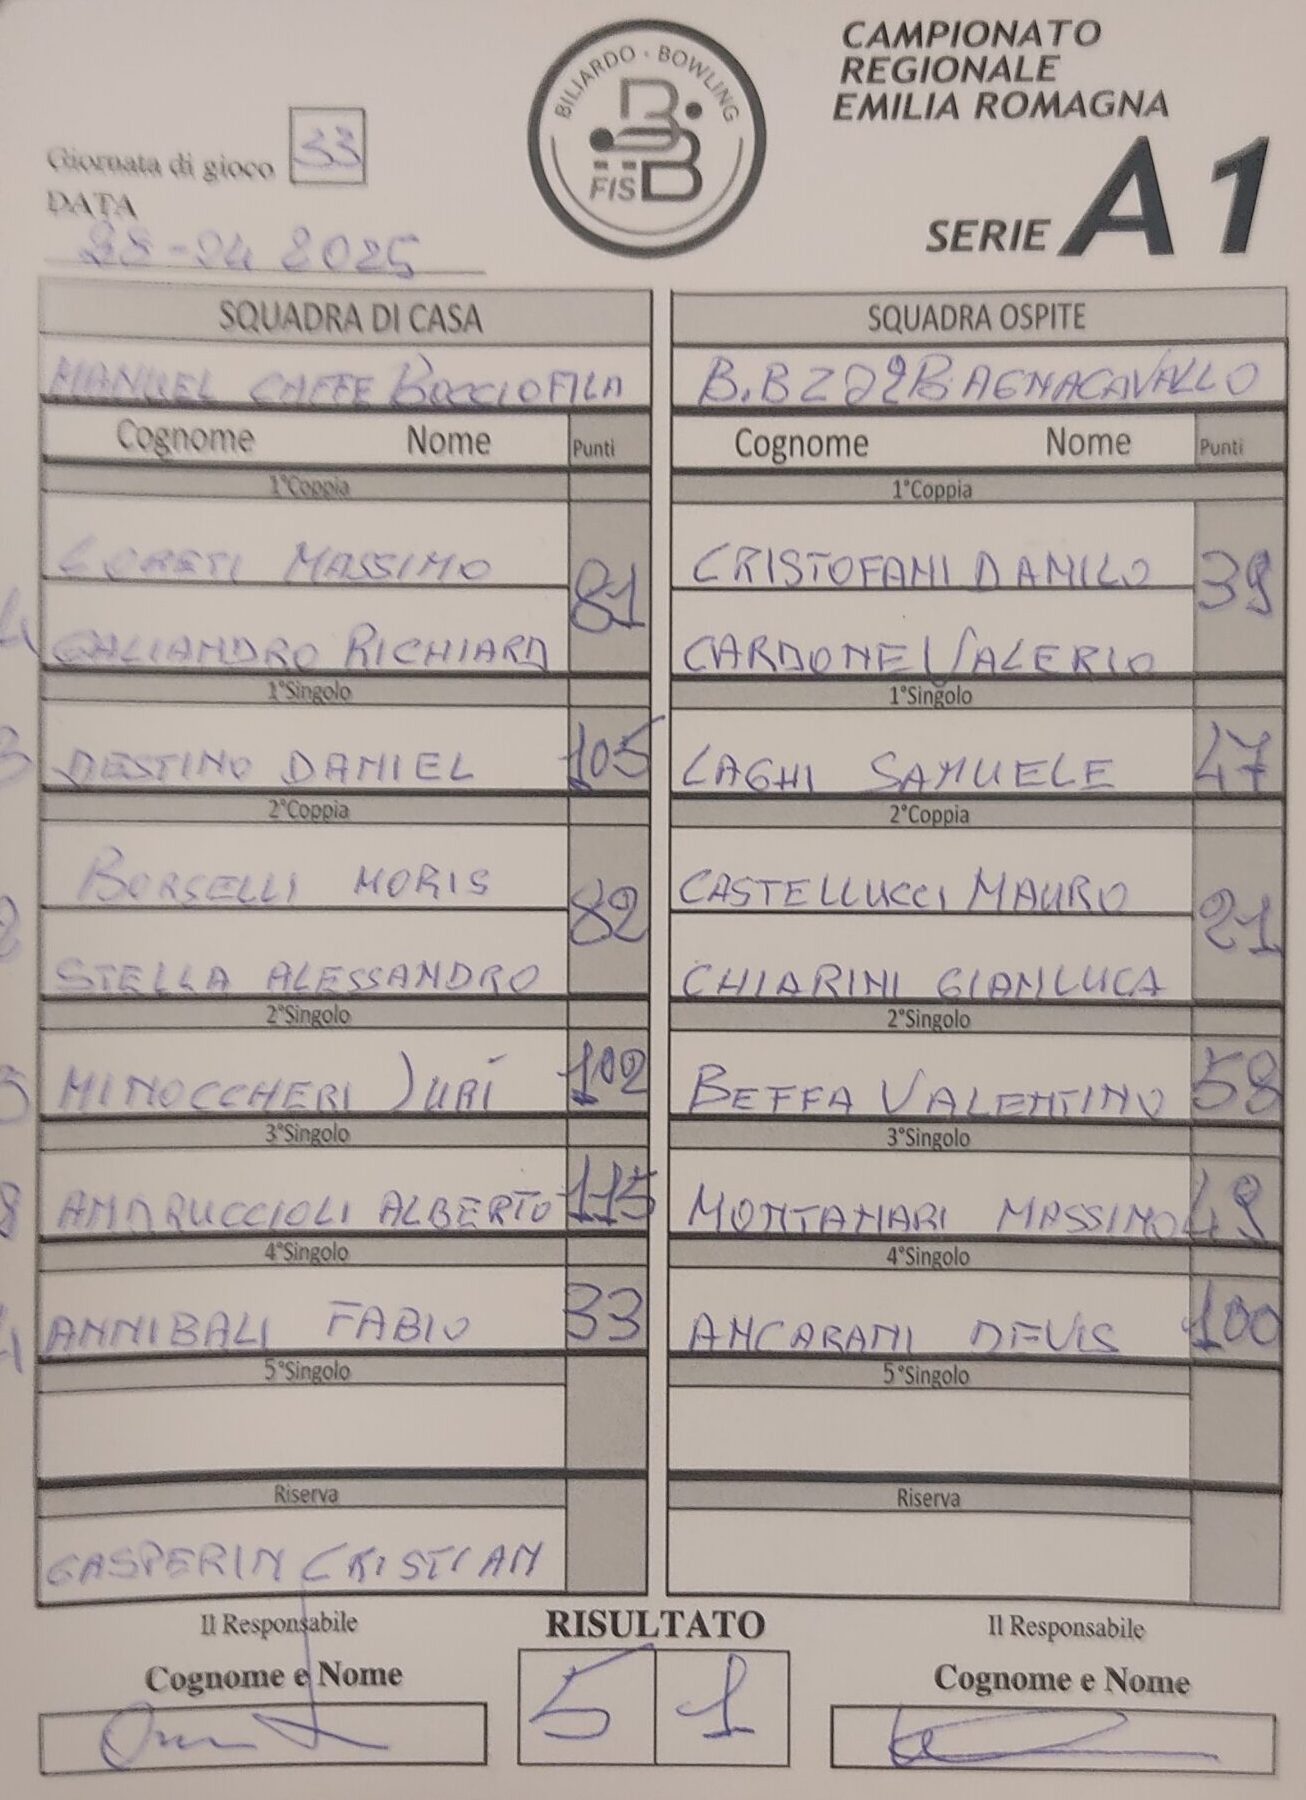 BILIARDO · BOWLING
FISBB
CAMPIONATO
REGIONALE
EMILIA ROMAGNA
SERIE A1
Giornata di gioco 33
DATA
28-04 2025
SQUADRA DI CASA SQUADRA OSPITE
MANUEL CAFFE BOCCIOFILA BAGNACAVALLO
Cognome Nome Punti Cognome Nome Punti
1°Coppia 1°Coppia
LORETI MASSIMO 81 CRISTOFANI DANILO 39
GALIANDRO RICHIARD CARDONE VALERIO
1°Singolo 1°Singolo
DESTINO DANIEL 105 LAGHI SAMUELE 47
2°Coppia 2°Coppia
BORSELLI MORIS 82 CASTELLUCCI MAURO 21
STELLA ALESSANDRO CHIARINI GIANLUCA
2°Singolo 2°Singolo
MINOCCHERI JURI 102 BEFFA VALENTINO 58
3°Singolo 3°Singolo
ANDRUCCIOLI ALBERTO 115 MONTANARI MASSIMO 49
4°Singolo 4°Singolo
ANNIBALI FABIO 33 ANCARANI DEVIS 100
5°Singolo 5°Singolo
Riserva Riserva
GASPERIN CRISTIAN
Il Responsabile RISULTATO Il Responsabile
Cognome e Nome 5 1 Cognome e Nome